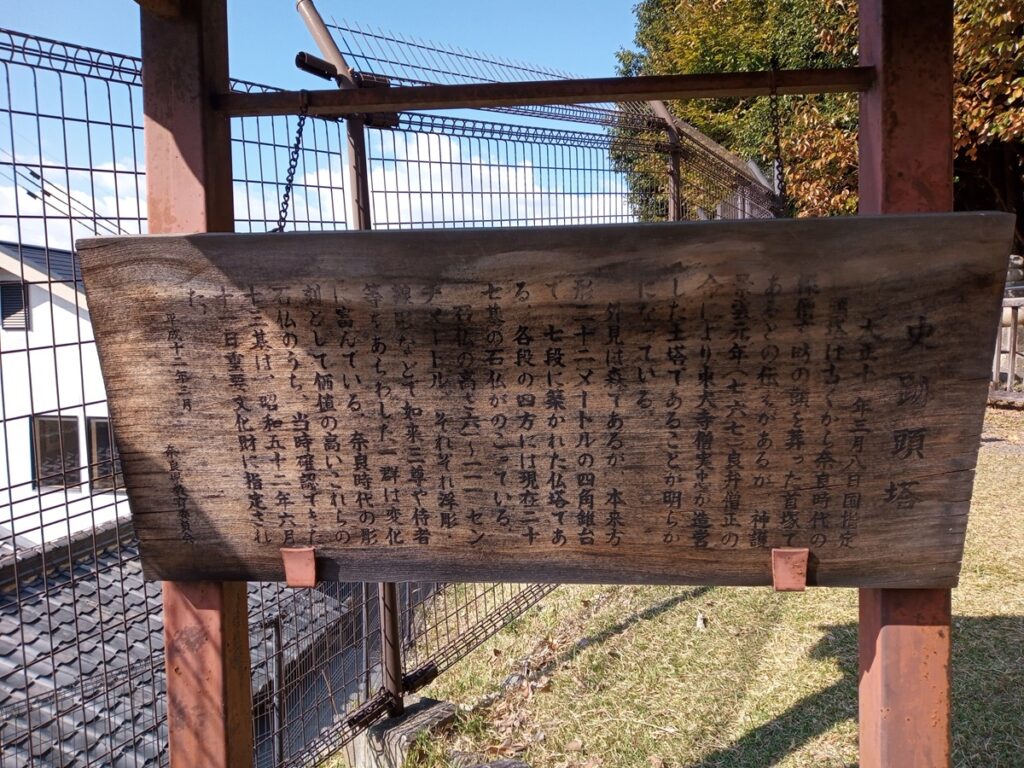 史跡頭塔
大正十一年三月八日国指定
頭塔は古くから奈良時代の
僧の頭を葬った首塚で
あるとの伝えがあるが、神護
景雲元年(七六七)良弁僧正の
命により東大寺僧実忠が造営
した土塔であることが明らか
になっている。
外見は森であるが、本来方
形三十二メートルの四角錐台
で、七段に築かれた仏塔であ
る。各段の四方には現在二十
七基の石仏がのこっている。
石仏の高さ六一〜一一一セン
チメートル。それぞれ浮彫、
線彫などで如来三尊や侍者
等をあらわした一群は変化
に富んでいる。奈良時代の彫
刻として価値の高いこれらの
石仏のうち、当時確認できた
十三基は、昭和五十二年六月
十一日重要文化財に指定され
た。
平成十一年一月 奈良県教育委員会